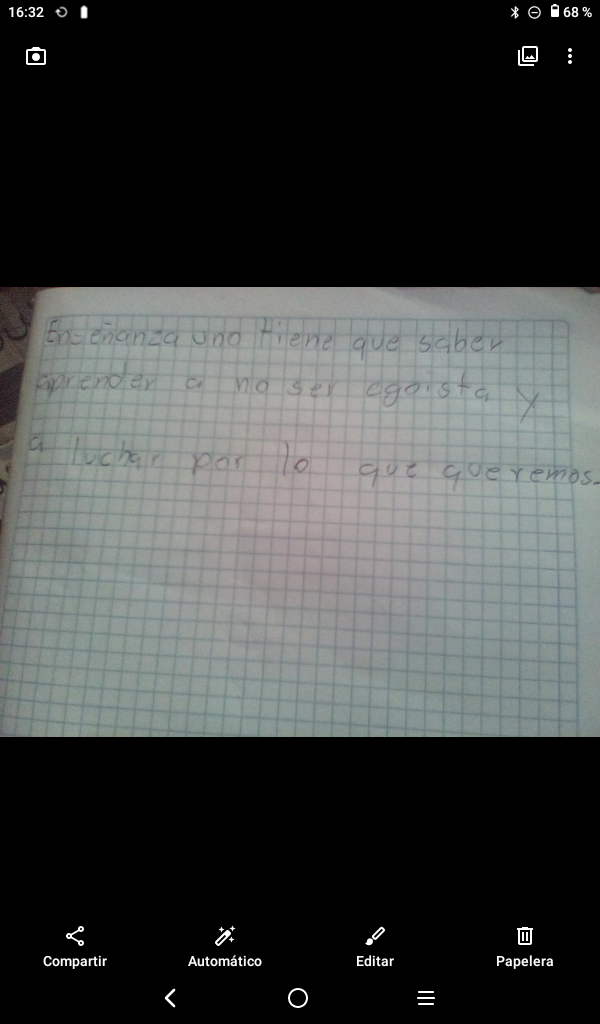 16:32
68 %
Enseñanza uno tiene que saber
aprender a no ser egoista y
a luchar por lo que queremos.
Compartir
Automático
Editar
Papelera